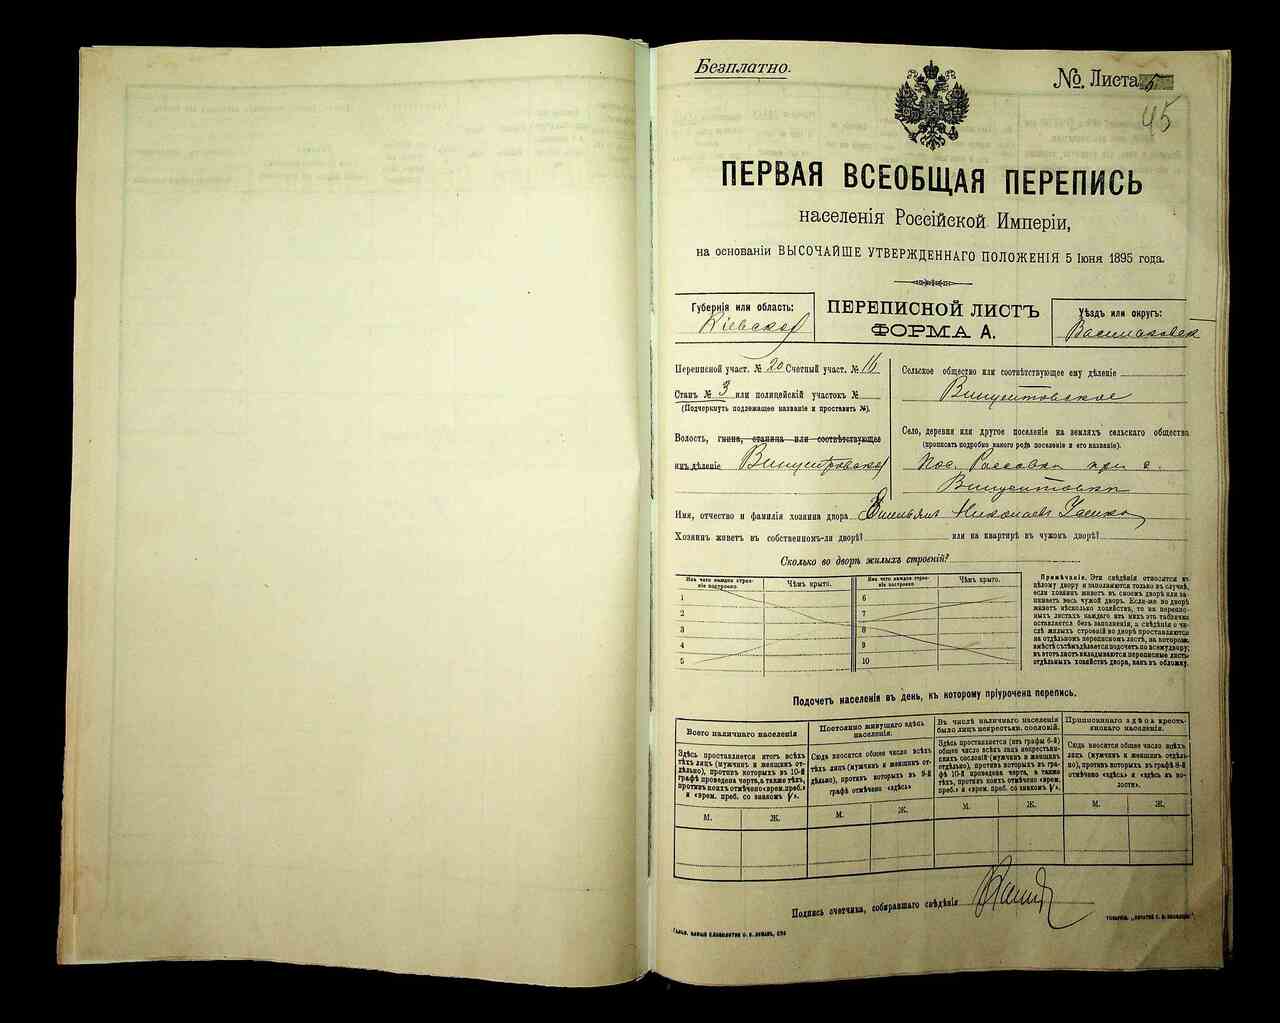 Безплатно.
№ Листа 5
45
ПЕРВАЯ ВСЕОБЩАЯ ПЕРЕПИСЬ
населенія Россійской Имперіи,
на основаніи ВЫСОЧАЙШЕ УТВЕРЖДЕННАГО ПОЛОЖЕНІЯ 5 Іюня 1895 года.
Губернія или область:
Кіевская
ПЕРЕПИСНОЙ ЛИСТЪ
ФОРМА А.
Уѣздъ или округъ:
Васильковск
Переписной участ. № 20 Счетный участ. № 16
Станъ № 3 или полицейскій участокъ №
(Подчеркнуть подлежащее названіе и проставить №).
Волость, гмина, станица или соотвѣтствующее
имъ дѣленіе Винцентовская
Сельское общество или соотвѣтствующее ему дѣленіе
Винцентовское
Село, деревня или другое поселеніе на земляхъ сельскаго общества
(прописать подробно какого рода поселеніе и его названіе).
пос. при с.
Винцентовки
Имя, отчество и фамилія хозяина двора Николаевъ
Хозяинъ живетъ въ собственномъ-ли дворѣ? или на квартирѣ въ чужомъ дворѣ?
Сколько во дворѣ жилыхъ строеній?
Изъ чего каждое строеніе построено.
Чѣмъ крыто.
1
2
3
4
5
Изъ чего каждое строеніе построено.
Чѣмъ крыто.
6
7
8
9
10
Примѣчаніе. Эти свѣдѣнія относятся къ
цѣлому двору и заполняются только въ случаѣ,
если хозяинъ живетъ въ своемъ дворѣ или за-
нимаетъ весь чужой дворъ. Если-же во дворѣ
живетъ нѣсколько хозяйствъ, то на перепис-
ныхъ листахъ каждаго изъ нихъ эта табличка
оставляется безъ заполненія, а свѣдѣнія о чи-
слѣ жилыхъ строеній во дворѣ проставляются
на отдѣльномъ переписномъ листѣ, на которомъ
вмѣстѣ съ тѣмъ дѣлается подсчетъ по всему двору;
въ этотъ листъ вкладываются переписные листы
отдѣльныхъ хозяйствъ двора, какъ въ обложку.
Подсчетъ населенія въ день, къ которому пріурочена перепись.
Всего наличнаго населенія
Здѣсь проставляется итогъ всѣхъ
тѣхъ лицъ (мужчинъ и женщинъ от-
дѣльно), противъ которыхъ въ 10-й
графѣ проведена черта, а также тѣхъ,
противъ коихъ отмѣчено «врем. преб.»
и «врем. преб. со знакомъ V».
Постоянно живущаго здѣсь
населенія.
Сюда вносится общее число всѣхъ
тѣхъ лицъ (мужчинъ и женщинъ от-
дѣльно), противъ которыхъ въ 9-й
графѣ отмѣчено «здѣсь»
Въ числѣ наличнаго населенія
было лицъ некрестьян. сословій.
Здѣсь проставляется (изъ графы 6-й)
общее число всѣхъ лицъ некрестьян-
скихъ сословій (мужчинъ и женщинъ
отдѣльно), противъ которыхъ въ гра-
фѣ 10-й проведена черта, а также
тѣхъ, противъ коихъ отмѣчено «врем.
преб.» и «врем. преб. со знакомъ V».
Приписаннаго здѣсь кресть-
янскаго населенія.
Сюда вносится общее число всѣхъ
лицъ (мужчинъ и женщинъ отдѣль-
но), противъ которыхъ въ графѣ 8-й
отмѣчено «здѣсь» и «здѣсь въ во-
лости».
М. Ж. М. Ж. М. Ж. М. Ж.
Подпись счетчика, собиравшаго свѣдѣнія